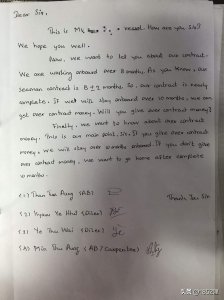 Dear Sir,
This is MV vessel. How are you Sir?
We hope you well.
Now, we want to tell you about our contract.
We are working onboard over 8 months. As you know, our
seaman contract is 8 ± 2 months. So, our contract is nearly
complete. If well will stay onboard over 10 months, we can
get over contract money. Will you give over contract money?
Finally, we want to know about over contract
money. This is our main point, Sir. If you give over contract
money, we will stay over 10 months onboard. If you don't give
over contract money, we want to go home after complete
10 months.
(1) Than Tun Aung (AB)
Thanks Sir
(2) Kyaw Ye Htut (Oiler)
(3) Ye Thu Wai (Oiler)
(4) Min Thu Aung (AB / Carpenter)